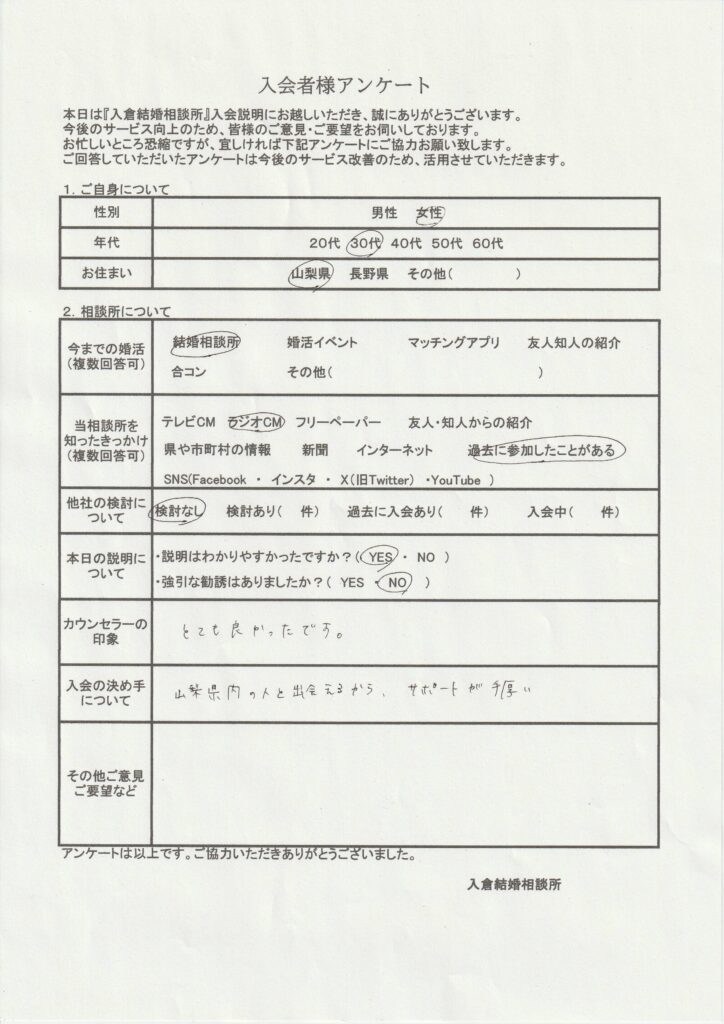 入会者様アンケート
本日は『入倉結婚相談所』入会説明にお越しいただき、誠にありがとうございます。
今後のサービス向上のため、皆様のご意見・ご要望をお伺いしております。
お忙しいところ恐縮ですが、宜しければ下記アンケートにご協力お願い致します。
ご回答していただいたアンケートは今後のサービス改善のため、活用させていただきます。
1. ご自身について
性別 男性 女性
年代 20代 30代 40代 50代 60代
お住まい 山梨県 長野県 その他( )
2. 相談所について
今までの婚活
(複数回答可)
結婚相談所 婚活イベント マッチングアプリ 友人知人の紹介
合コン その他( )
当相談所を
知ったきっかけ
(複数回答可)
テレビCM ラジオCM フリーペーパー 友人・知人からの紹介
県や市町村の情報 新聞 インターネット 過去に参加したことがある
SNS(Facebook ・ インスタ ・ X(旧Twitter) ・YouTube )
他社の検討に
ついて
検討なし 検討あり( 件) 過去に入会あり( 件) 入会中( 件)
本日の説明に
ついて
・説明はわかりやすかったですか?( YES ・ NO )
・強引な勧誘はありましたか?( YES ・ NO )
カウンセラーの
印象
とても良かったです。
入会の決め手
について
山梨県内の人と出会えるから、サポートが手厚い
その他ご意見
ご要望など
アンケートは以上です。ご協力いただきありがとうございました。
入倉結婚相談所